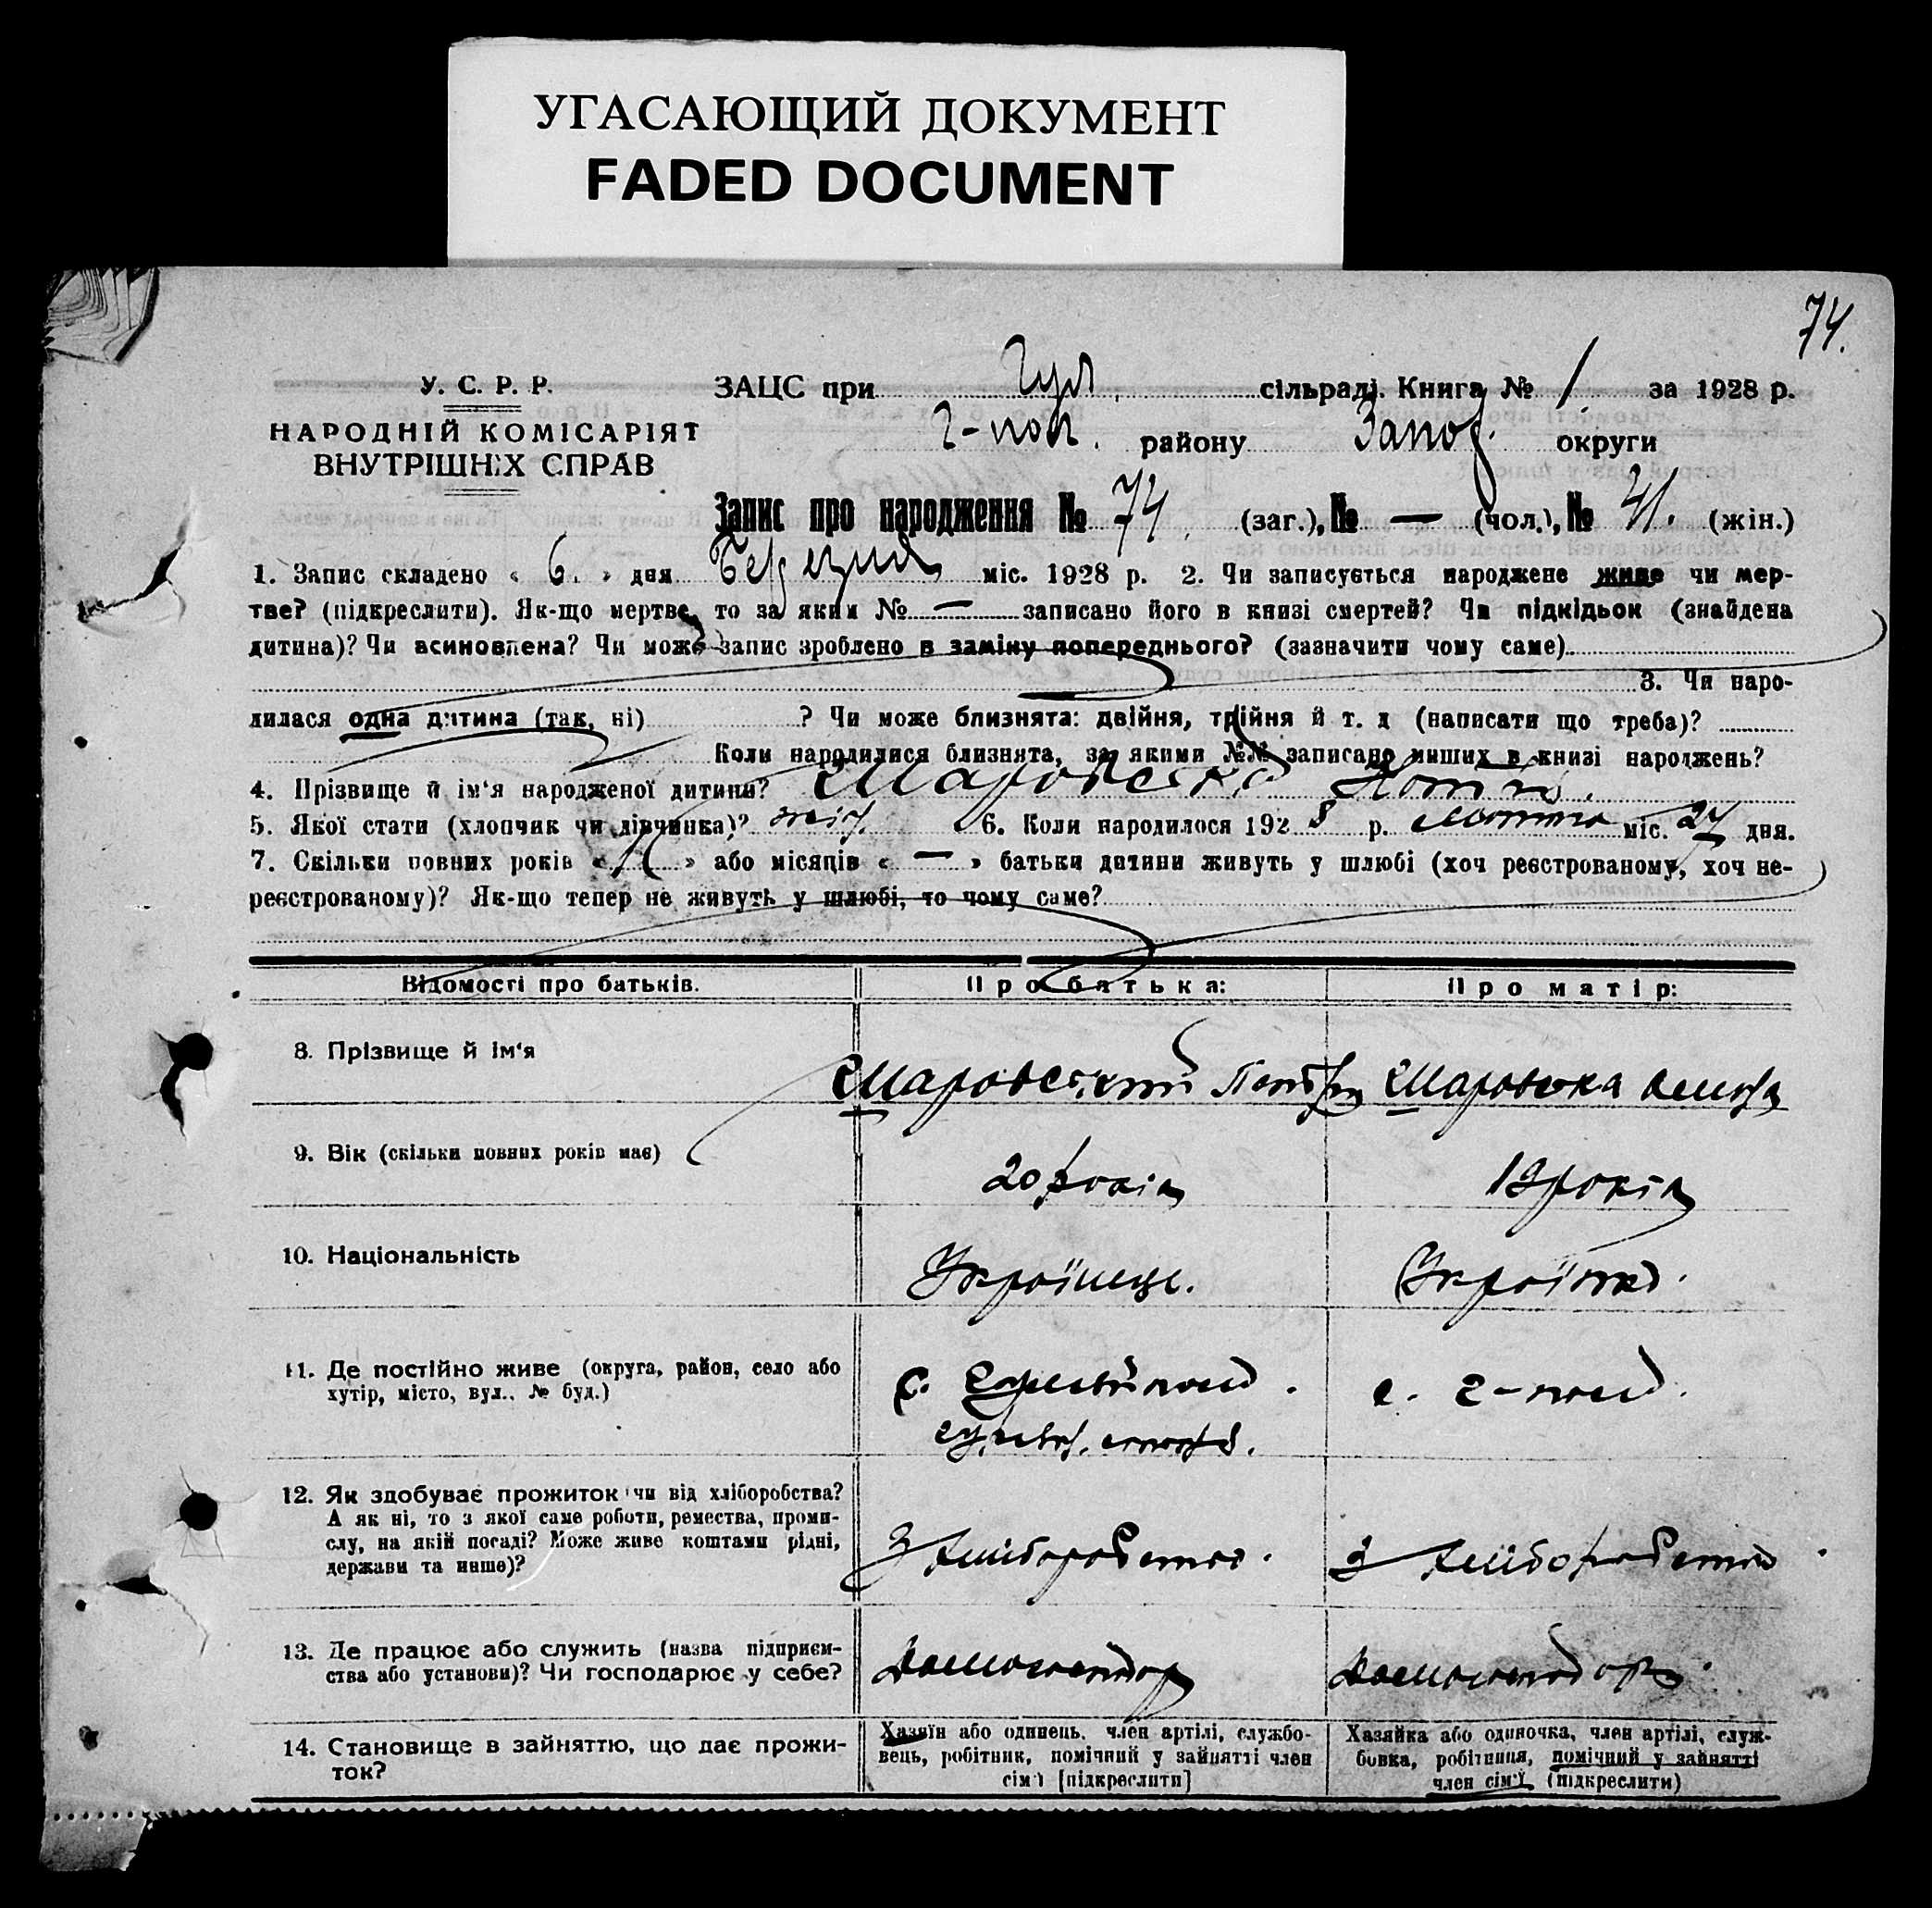 УГАСАЮЩИЙ ДОКУМЕНТ
FADED DOCUMENT
74.
У. С. Р. Р.
НАРОДНІЙ КОМІСАРІЯТ
ВНУТРІШНІХ СПРАВ
ЗАЦС при Гул. сільраді. Книга № 1 за 1928 р.
Г-пол. району Запор. округи
Запис про народження № 74 (заг.), № — (чол.), № 41. (жін.)
1. Запис складено « 6. » дня Березня міс. 1928 р. 2. Чи записується народжене живе чи мер-
тве? (підкреслити). Як-що мертве, то за яким № — записано його в книзі смертей? Чи підкідьок (знайдена
дитина)? Чи всиновлена? Чи може запис зроблено в заміну попереднього? (зазначити чому саме)
3. Чи наро-
дилася одна дитина (так, ні) ? Чи може близнята: двійня, трійня й т. д (написати що треба)?
Коли народилися близнята, за якими №№ записано инших в книзі народжень?
4. Прізвище й ім'я народженої дитини? Шаровська
5. Якої стати (хлопчик чи дівчинка)? жін. 6. Коли народилося 1928 р. Лютого міс. 27 дня.
7. Скільки повних років « 1 » або місяців « — » батьки дитини живуть у шлюбі (хоч реєстрованому, хоч не-
реєстрованому)? Як-що тепер не живуть у шлюбі, то чому саме?
Відомості про батьків. Про батька: Про матір:
8. Прізвище й ім'я Шаровський Петро Шаровська
9. Вік (скільки повних років має) 20 років 19 років
10. Національність Українець. Українка.
11. Де постійно живе (округа, район, село або
хутір, місто, вул., № буд.) с. Гуляйполе. с. Г-поле.
12. Як здобуває прожиток чи від хліборобства?
А як ні, то з якої саме роботи, ремества, проми-
слу, на якій посаді? Може живе коштами рідні,
держави та инше)? З хліборобства. З хліборобства.
13. Де працює або служить (назва підприєм-
ства або установи)? Чи господарює у себе? Домогосподар Домогосподарка.
14. Становище в зайняттю, що дає прожи-
ток?
Хазяїн або одинець, член артілі, службо-
вець, робітник, помічний у зайнятті член
сім'ї [підкреслити]
Хазяйка або одиночка, член артілі, служ-
бовка, робітниця, помічний у зайнятті
член сім'ї (підкреслити)